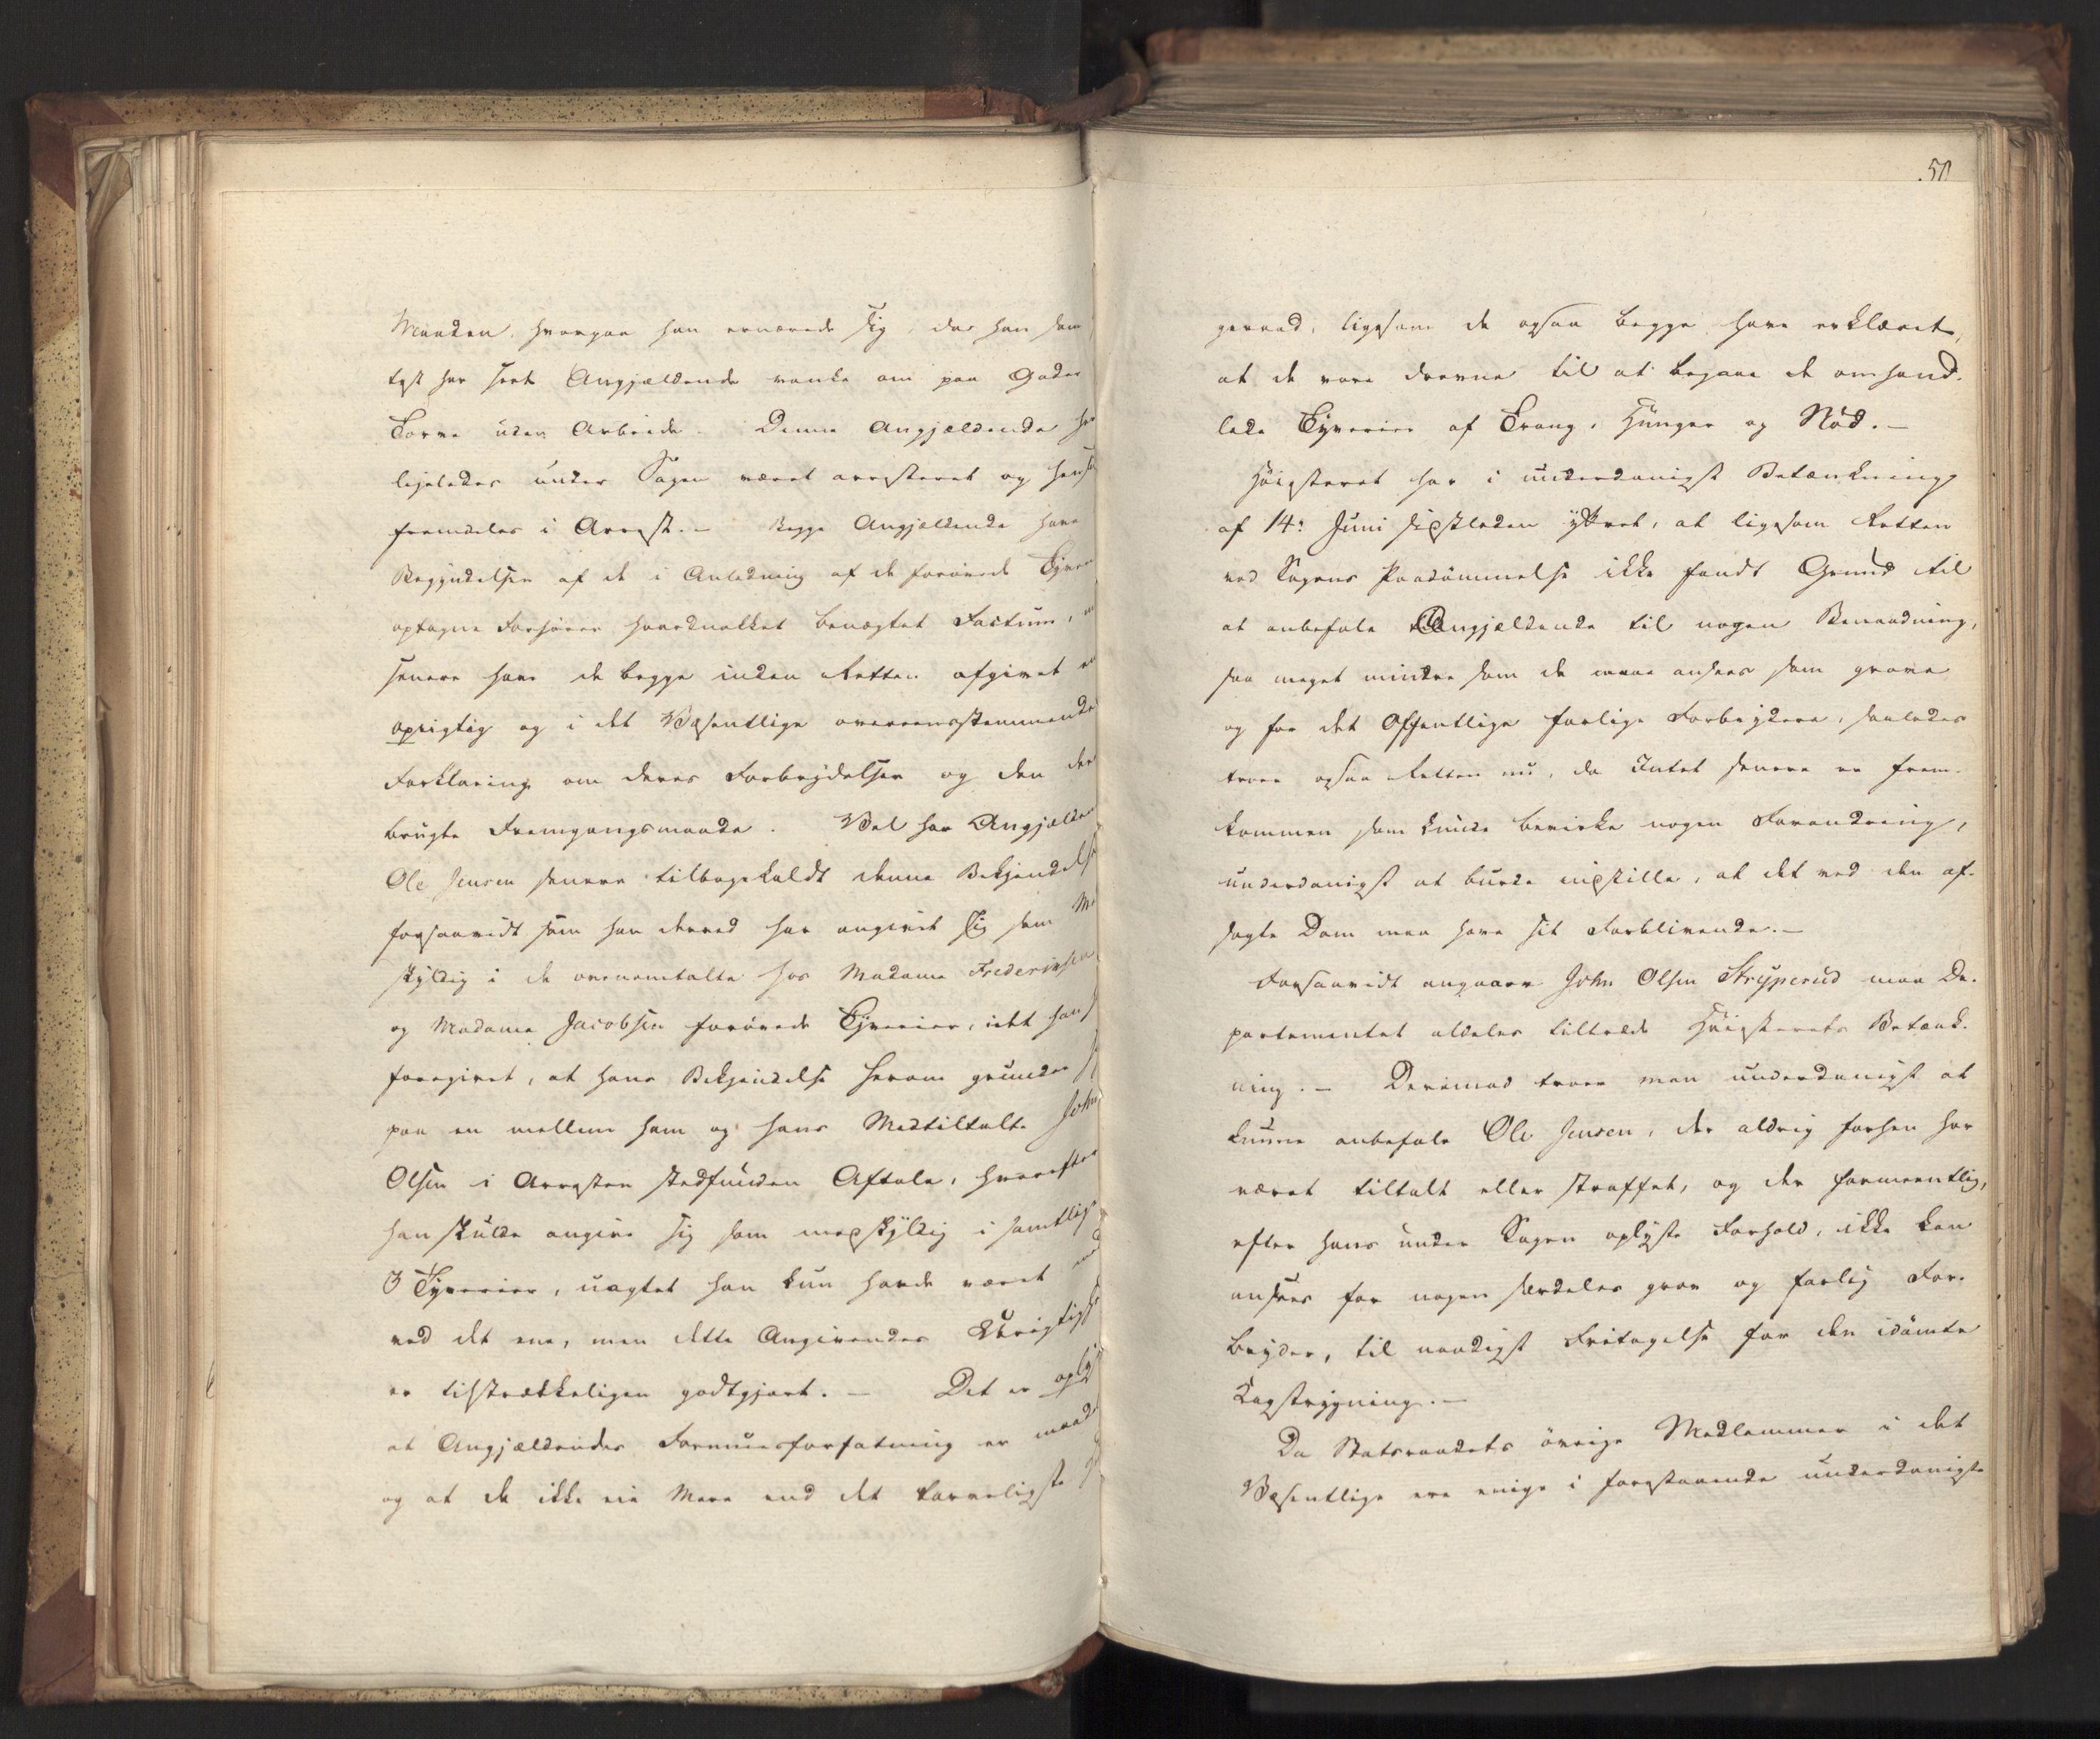 Maaden, hvorpaa han ernærede sig, da han som
tyst har seet Angjældende vanke om paa Gader
Torve uden Arbeide. Denne Angjældende har
ligeledes under Sagen været arresteret og
fremdeles i Arrest. – Begge Angjældende have
Begyndelsen af de i Anledning af de forøvede
optagne Forhører haardnakket benægtet Factum,
senere have de begge inden Retten afgivet en
oprigtig og i det Væsentlige overeensstemmende
Forklaring om deres Forbrydelser og den der
brugte Fremgangsmaade. Vel har
Ole Jensen senere tilbagekaldt denne Bekjendelse
forsaavidt som han derved har angivet sig som
skyldig i de ovenomtalte hos Madame Frederiksen
og Madame Jacobsen forøvede Tyverier, idet han
foregivet, at hans Bekjendelse herom grunder
paa en mellem ham og hans Medtiltalte John
Olsen i Arresten stedfunden Aftale, hvorefter
han skulde angive sig som medskyldig i samtlige
3 Tyverier, uagtet han kun havde været
ved det ene, men dette Angivendes Urigtighed
er tilstrækkeligen godtgjort. – Det er oplyst
at Angjældendes Formuesforfatning er maade
og at de ikke eie Mere end det tarveligste
50
gevand, ligesom de ogsaa begge have erklæret,
at de vare drevne til at begaae de omhand-
lede Tyverier af Trang, Hunger og Nød. –
Høiesteret har i underdanigst Betænkning
af 14: Juni sidstleden yttret, at ligesom Retten
ved Sagens Paadømmelse ikke fandt Grund til
at anbefale Angjældende til nogen Benaadning,
saa meget mindre som de maae ansees som grove
og for det Offentlige farlige Forbrydere, saaledes
troer ogsaa Retten nu, da Intet senere er frem-
kommen som kunde bevirke nogen Forandring,
underdanigst at burde indstille, at det ved den af-
sagte Dom maa have sit Forblivende. –
Forsaavidt angaaer John Olsen Stryperud maa De-
partementet aldeles tiltræde Høiesterets Betænk-
ning. – Derimod troer man underdanigst at
kunne anbefale Ole Jensen, der aldrig forhen har
været tiltalt eller straffet, og der formeentlig,
efter hans under Sagen oplyste Forhold, ikke kan
ansees for nogen særdeles grov og farlig For-
bryder, til naadigst Fritagelse for den idømte
Kagstrygning. –
Da Statsraadets øvrige Medlemmer i det
Væsentlige ere enige i forestaaende underdanigste